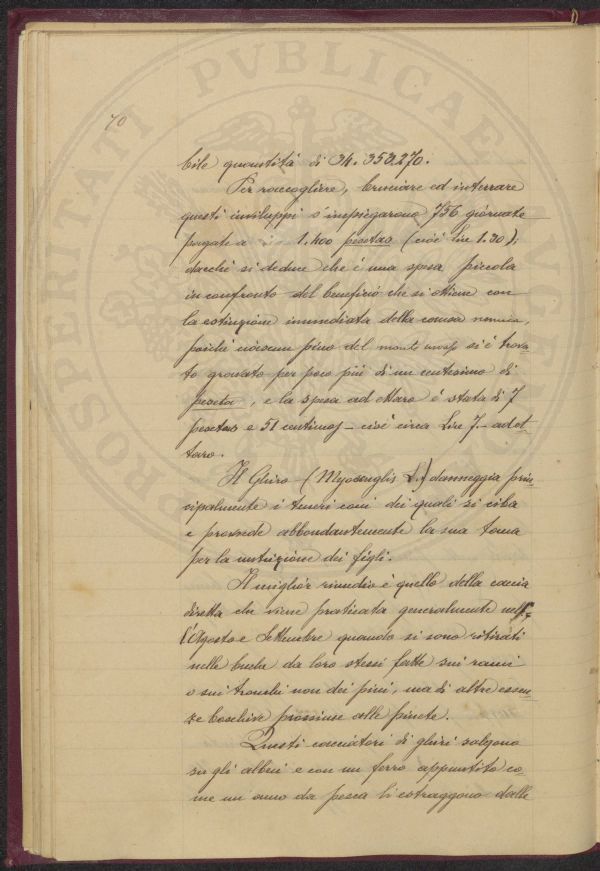 PROSPERITATI PVBLICAE AVGENDAE
70
bile quantità di 34.353.270.
Per raccogliere, bruciare ed interrare
questi inviluppi s'impiegarono 756 giornate
pagate a 1.400 pesetas (cioè Lire 1.30);
dacchè si deduce che è una spesa piccola
in confronto del beneficio che si ottiene con
la estinzione immediata della causa nemica,
poichè nessun pino del monte si è trova-
to gravato per poco più di un centesimo di
peseta, e la spesa ad ettaro è stata di 7
pesetas e 51 centimos - cioè circa Lire 7.- ad et-
taro.
Il Ghiro (Myoxus glis L.) danneggia prin-
cipalmente i teneri coni dei quali si ciba
e provvede abbondantemente la sua tana
per la nutrizione dei figli.
Il miglior rimedio è quello della caccia
diretta che viene praticata generalmente nel-
l'Agosto e Settembre quando si sono ritirati
nelle buche da loro stessi fatte sui rami
o sui tronchi non dei pini, ma di altre essen-
ze boschive prossime alle pinete.
Questi cacciatori di ghiri salgono
su gli alberi e con un ferro appuntito co-
me un amo da pesca li estraggono dalle